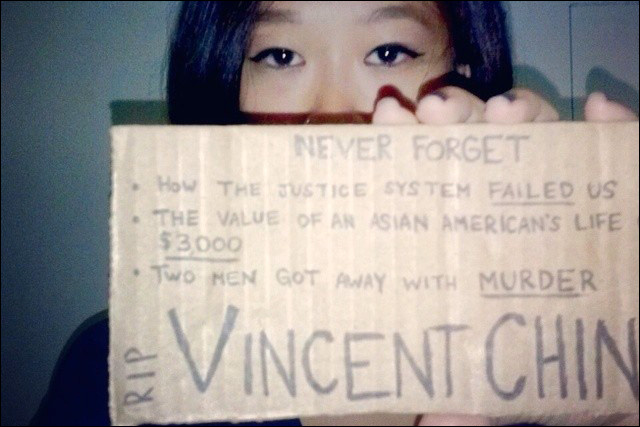 NEVER FORGET
• HOW THE JUSTICE SYSTEM FAILED US
• THE VALUE OF AN ASIAN AMERICAN'S LIFE
$3000
• TWO MEN GOT AWAY WITH MURDER
RIP
VINCENT CHIN